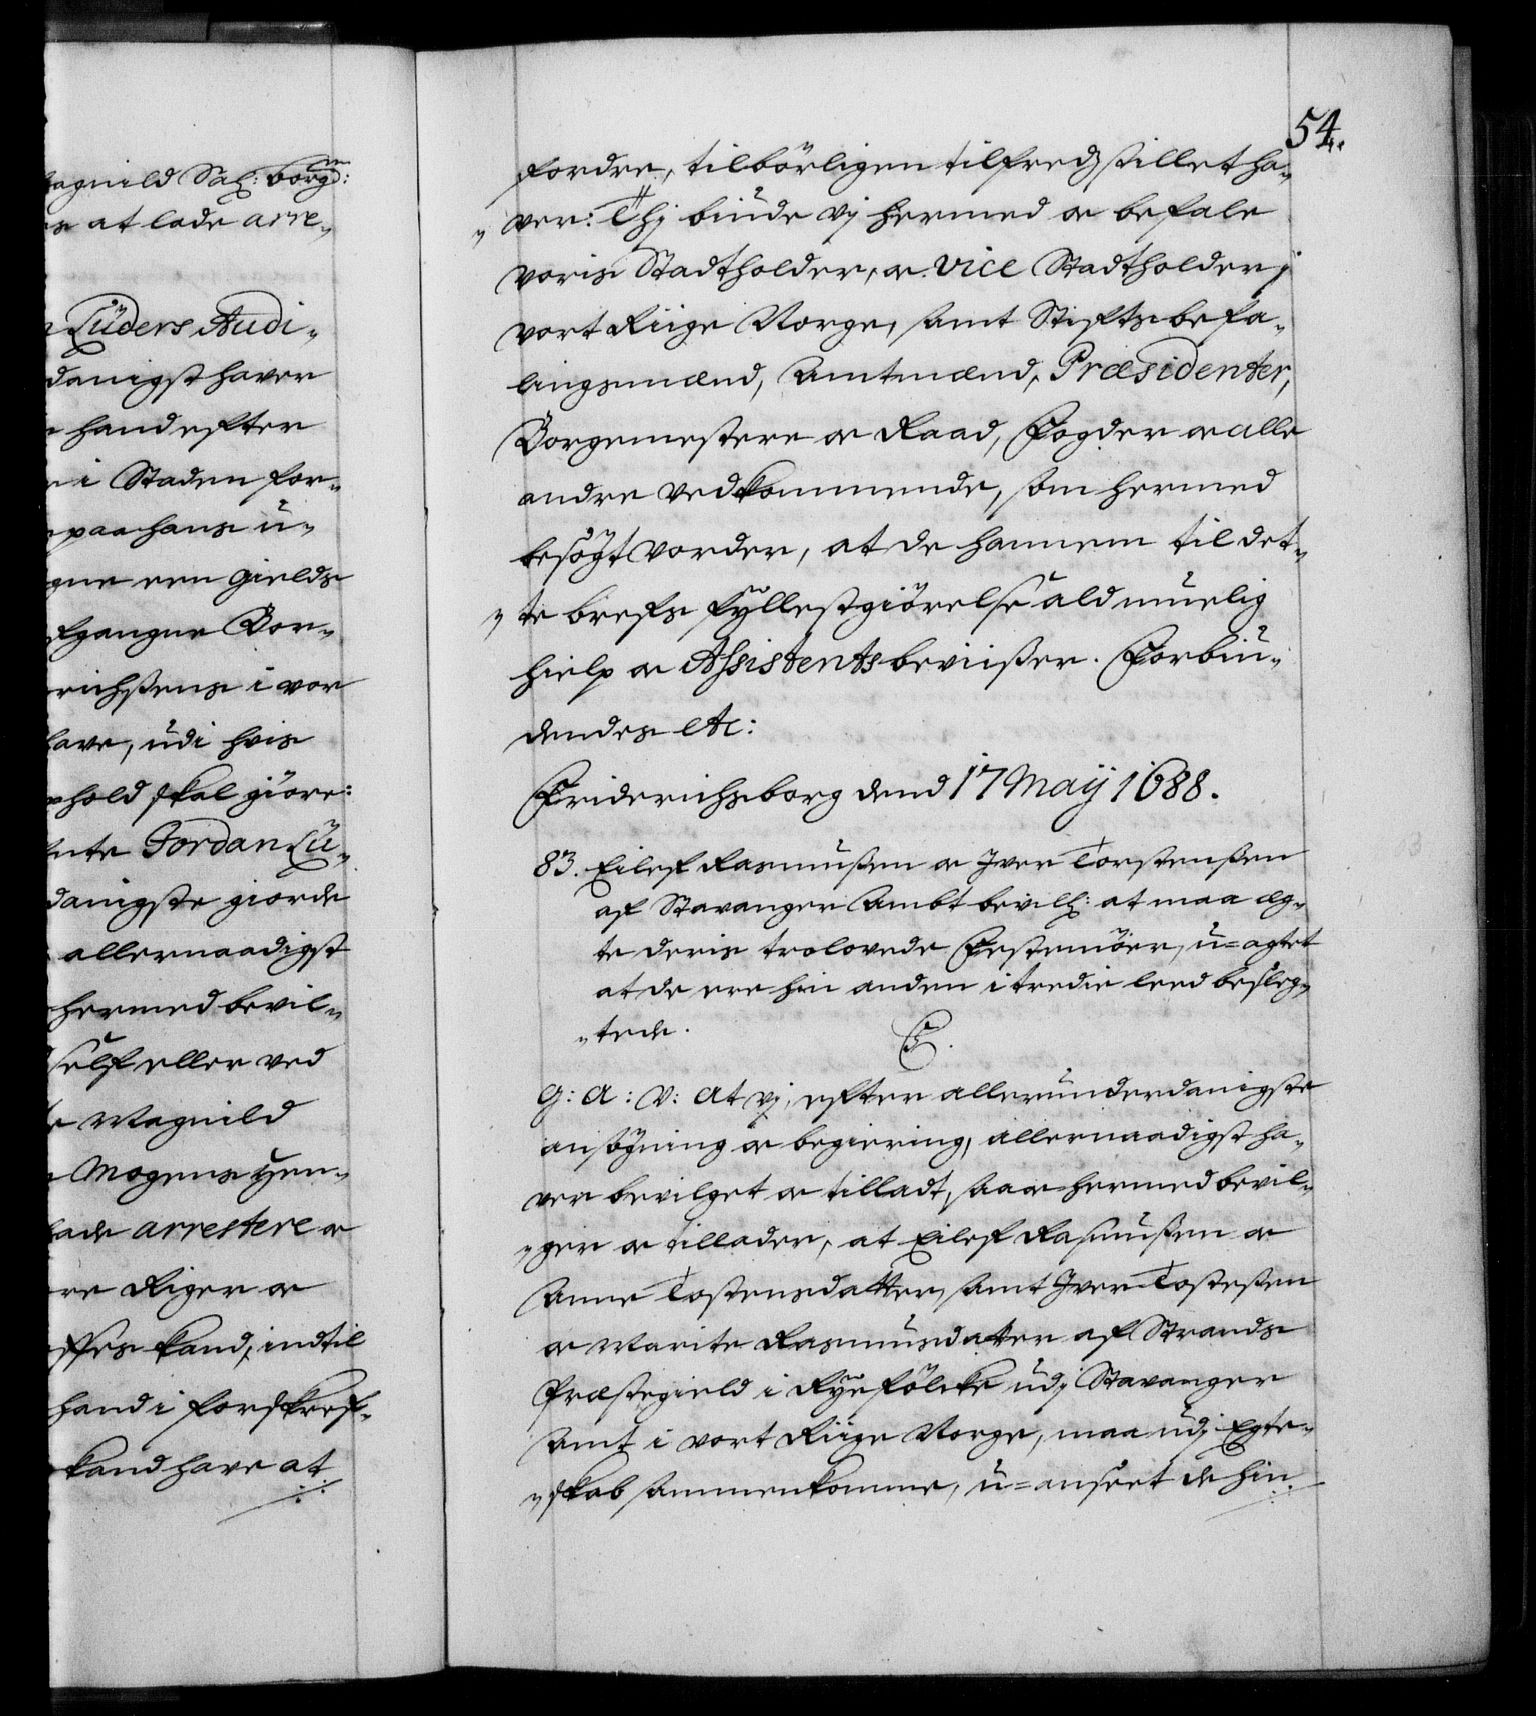 agnild Sal: borg:
at lade arre„
Lüders Audi„
danigst haver
hand efter
i Staden for„
paa hans u„
een gields
fgangne Bor„
richsens i vor
have, udi hvis
hold skal giöre:
Jordan Lü„
danigste giorde
allernaadigst
hermed bevil„
self eller ved
Magnild
Mogens Hen„
lade arrestere oc
re Riger oc
kand, indtil
hand i forskref„
kand have at
54.
fordre, tilbörligen tilfredsstillet ha„
„ver: Thj biude vj hermed oc befale
voris Stadtholder, oc vice Stadtholder j
vort Riige Norge, samt Stiftsbefa„
lingsmænd, Amtmænd, Præsidenter,
Borgemestere oc Raad, Fogder oc alle
andre vedkommende, som hermed
besögt vorder, at de hannem til det„
„te brefs fyllestgiörelse ald muelig
hielp oc Assistents beviißer. Forbiu„
dendes etc:
Friderichsborg dend 17 Maij 1688.
83. Eilef Rasmußen oc Iver Torstensßen
af Stavanger Ambt bevilg: at maa æg„
te deris trolovede Festemöer, u=agtet
at de ere hin anden i tredie leed besleg„
„tede.
C.
G: A: V: At vj, efter allerunderdanigste
ansögning oc begiering, allernaadigst ha„
ver bevilget oc tilladt, saa oc hermed bevil„
„ger oc tillader, at Eilef Rasmußen oc
Anne Tostensdatter, samt Iver Tosteßen
oc Marite Rasmusdatter af Strands
Præstegield i Ryefölcke udj Stavanger
Amt i vort Riige Norge, maa udj Egte„
„skab sammenkomme, u=anseet de hin